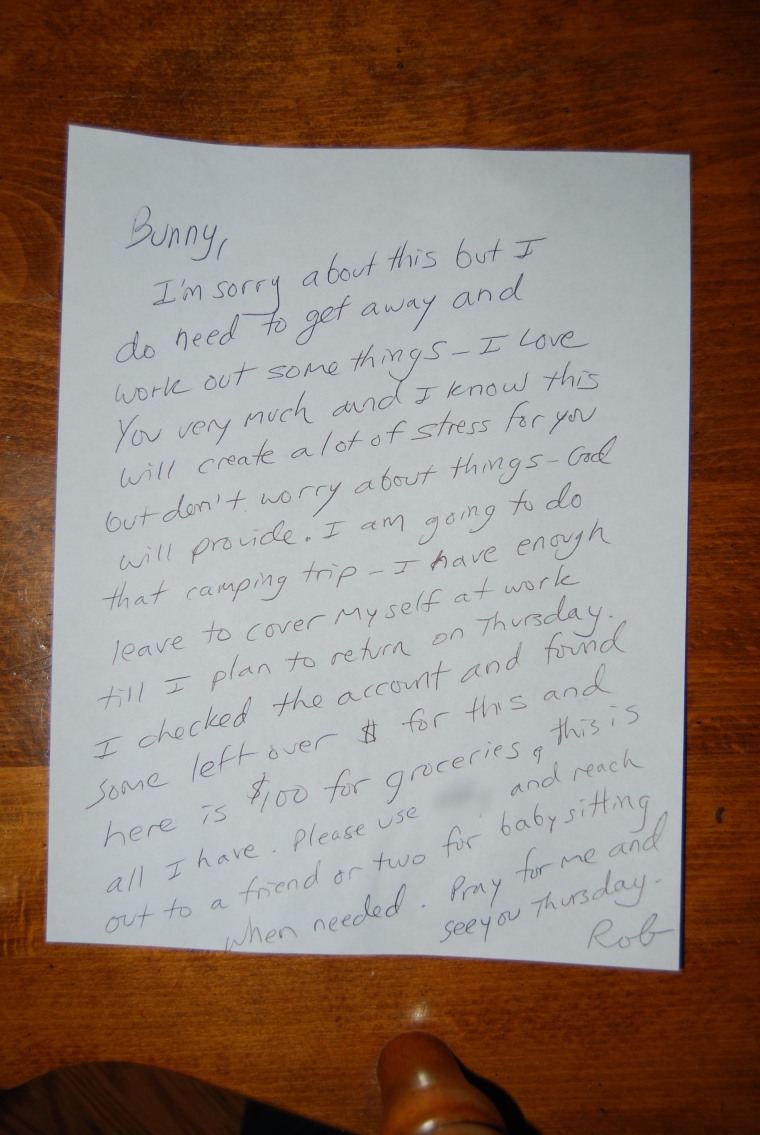 Bunny,
I'm sorry about this but I
do need to get away and
work out some things – I love
You very much and I know this
will create a lot of stress for you
but don't worry about things – God
will provide. I am going to do
that camping trip – I have enough
leave to cover myself at work
till I plan to return on Thursday.
I checked the account and found
some left over $ for this and
here is $100 for groceries, this is
all I have. Please use and reach
out to a friend or two for babysitting
when needed. Pray for me and
see you Thursday.
Rob